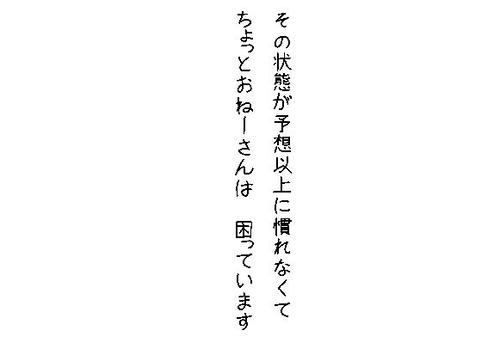 その状態が予想以上に慣れなくて
ちょっとおねーさんは　困っています